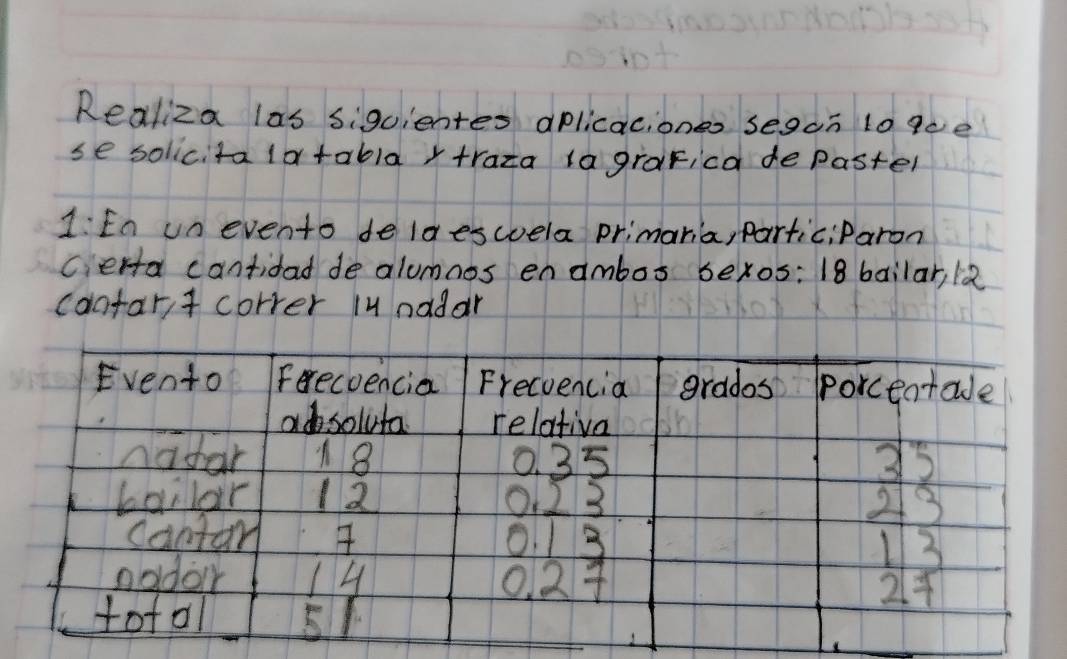 Realiza las siguientes aplicaciones según lo que
se solicita la tabla y traza la grafica de Pastel
1: En un evento de la escuela primaria, Participaron
cierta cantidad de alumnos en ambos sexos: 18 bailar, 12
cantar, 7 correr 14 nadar
Evento Frecuencia Frecuencia grados Porcentaje
absoluta relativa
natar 18 0.35 35
bailar 12 0.23 23
cantar 7 0.13 13
nadar 14 0.27 27
total 51